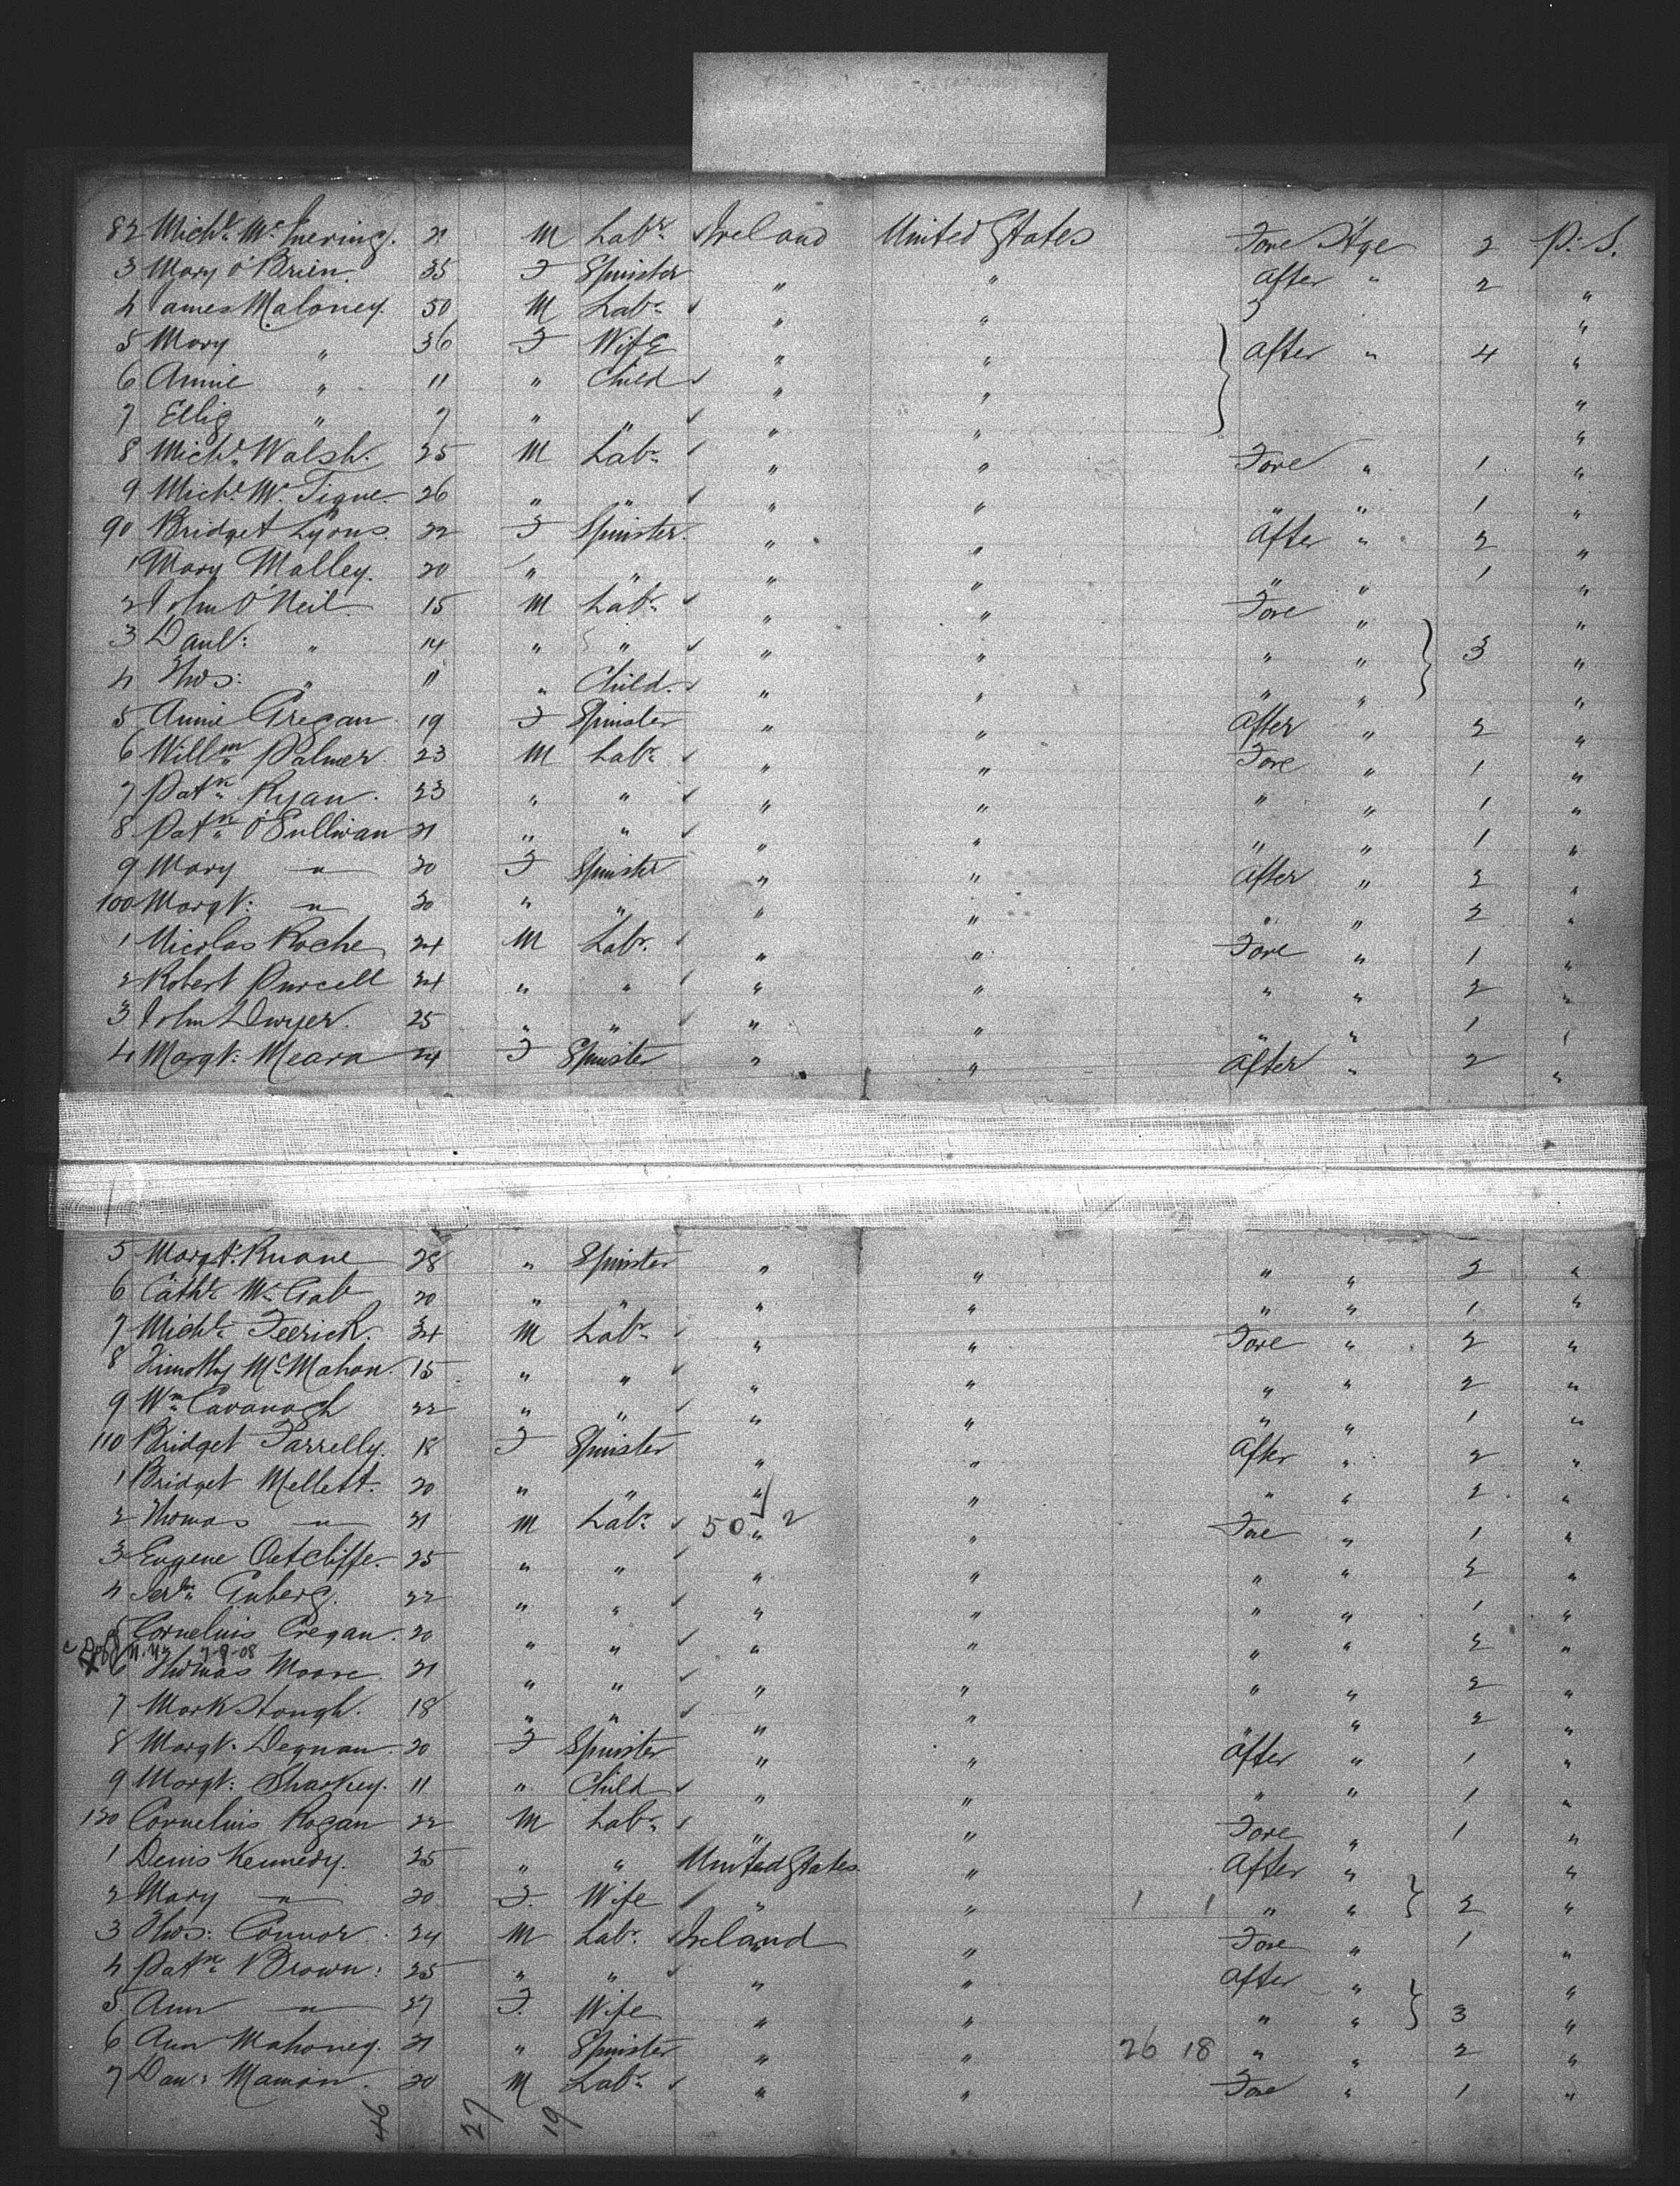 82 Michl. Mc Inering. 21 M Labr. Ireland United States Fore Stge 2 P. S.
3 Mary O'Brien. 35 F Spinster " " After " 2 "
4 James Maloney. 50 M Labr. " " "
5 Mary " 36 F Wife " " After " 4 "
6 Annie " 11 " Child " " "
7 " 7 " " " " "
8 Michl. Walsh. 25 M Labr. " " Fore " 1 "
9 Michl. Mc Tigue. 26 " " " " " " 1 "
90 Bridget Lyons. 22 F Spinster. " " After " 2 "
1 Mary Malley. 20 " " " " " " 1 "
2 John O'Neil 15 M Labr. " " Fore " "
3 Danl: " 14 " " " " " " 3 "
4 Thos: " 11 " Child. " " " " "
5 Annie Cregan 19 F Spinster " " After " 2 "
6 Willm. Palmer 23 M Labr. " " Fore " 1 "
7 Patk. Ryan. 23 " " " " " " 1 "
8 Patk. O'Sullivan 21 " " " " " " 1 "
9 Mary " 20 F Spinster " " After " 2 "
100 Margt: " 20 " " " " " " 2 "
1 Nicolas Roche 24 M Labr. " " Fore " 1 "
2 Robert Purcell 24 " " " " " " 2 "
3 John Dwyer. 25 " " " " " " 1 "
4 Margt: Meara 24 F Spinster " " After " 2 "
5 Margt. Ruane 28 " Spinster " " " " 2 "
6 Cathe. Mc 20 " " " " " " 1 "
7 Michl. Feerick. 24 M Labr. " " Fore " 2 "
8 Timothy McMahon. 15 " " " " " " 2 "
9 Wm. Cavanagh 22 " " " " " " 1 "
110 Bridget Farrelly. 18 F Spinster " " After " 2 "
1 Bridget Mellett. 20 " " " " " " 2 "
2 Thomas " 21 M Labr. 50 " 2 " Fore " 1 "
3 Eugene 25 " " " " " " 2 "
4 22 " " " " " " 1 "
5 Cornelius Cregan. 20 " " " " " " 2 "
7-9-08
6 Thomas Moore. 21 " " " " " " 2 "
7 Mark Hough. 18 " " " " " " 2 "
8 Margt. Degnan. 20 F Spinster " " After " 1 "
9 Margt: Sharkey. 11 " Child " " " " 1 "
120 Cornelius Rogan 22 M Labr. " " Fore " 1 "
1 Denis Kennedy. 25 " " United States " After " "
2 Mary " 20 F. Wife " " 1 1 " " 2 "
3 Thos: Connor. 24 M Labr. Ireland " Fore " 1 "
4 Patk. Brown: 25 " " " " After " "
5 Ann " 27 F. Wife " " " " 3 "
6 Ann Mahoney. 21 " Spinster " " 26 18 " " 2 "
7 Dan: 20 M Labr. " " Fore " 1 "
46 27 19